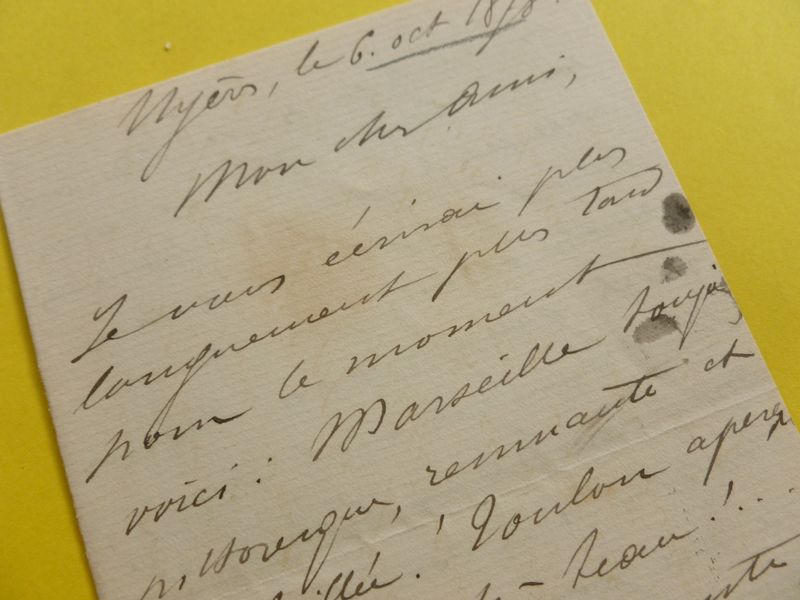 Hyères, le 6. oct 1878.
Mon cher Ami,
Je vous écrirai plus
longuement plus tard
pour le moment —
voici : Marseille toujours
pittoresque, remuante et
! Toulon aperçu
! ...